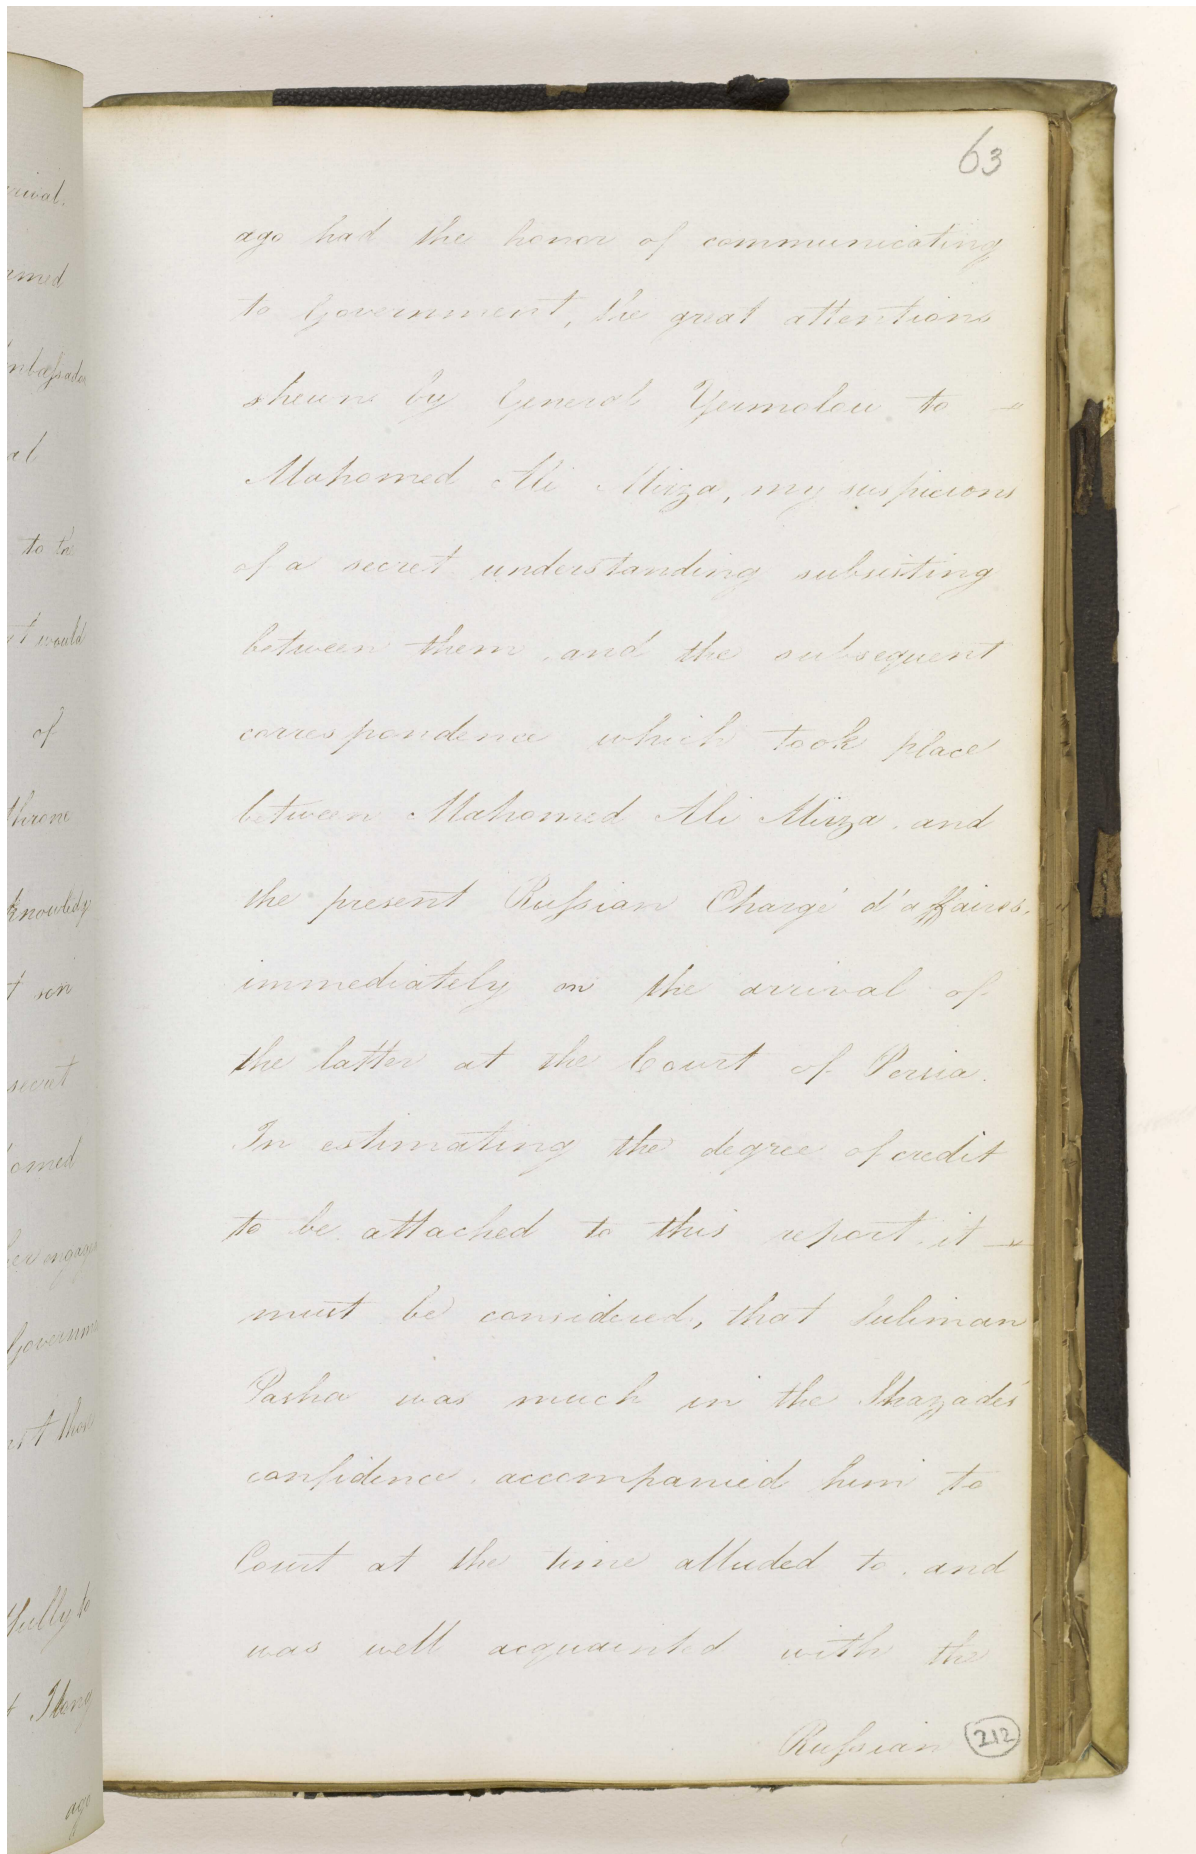 63
ago had the honor of communicating
to Government, the great attentions
shewn by General Yermolow to
Mahomed Ali Mirza, my suspicions
of a secret understanding subsisting
between them, and the subsequent
correspondence which took place
between Mahomed Ali Mirza, and
the present Russian Chargé d'affaires,
immediately on the arrival of
the latter at the Court of Persia.
In estimating the degree of credit
to be attached to this report, it
must be considered, that Suliman
Pasha was much in the Shazade's
confidence, accompanied him to
Court at the time alluded to, and
was well acquainted with the
Russian
212
rival.
rmed
mbassador
al
to the
t would
of
throne
knowledg
t son
secret
omed
er engag
Governme
st those
fully to
t I long
ago